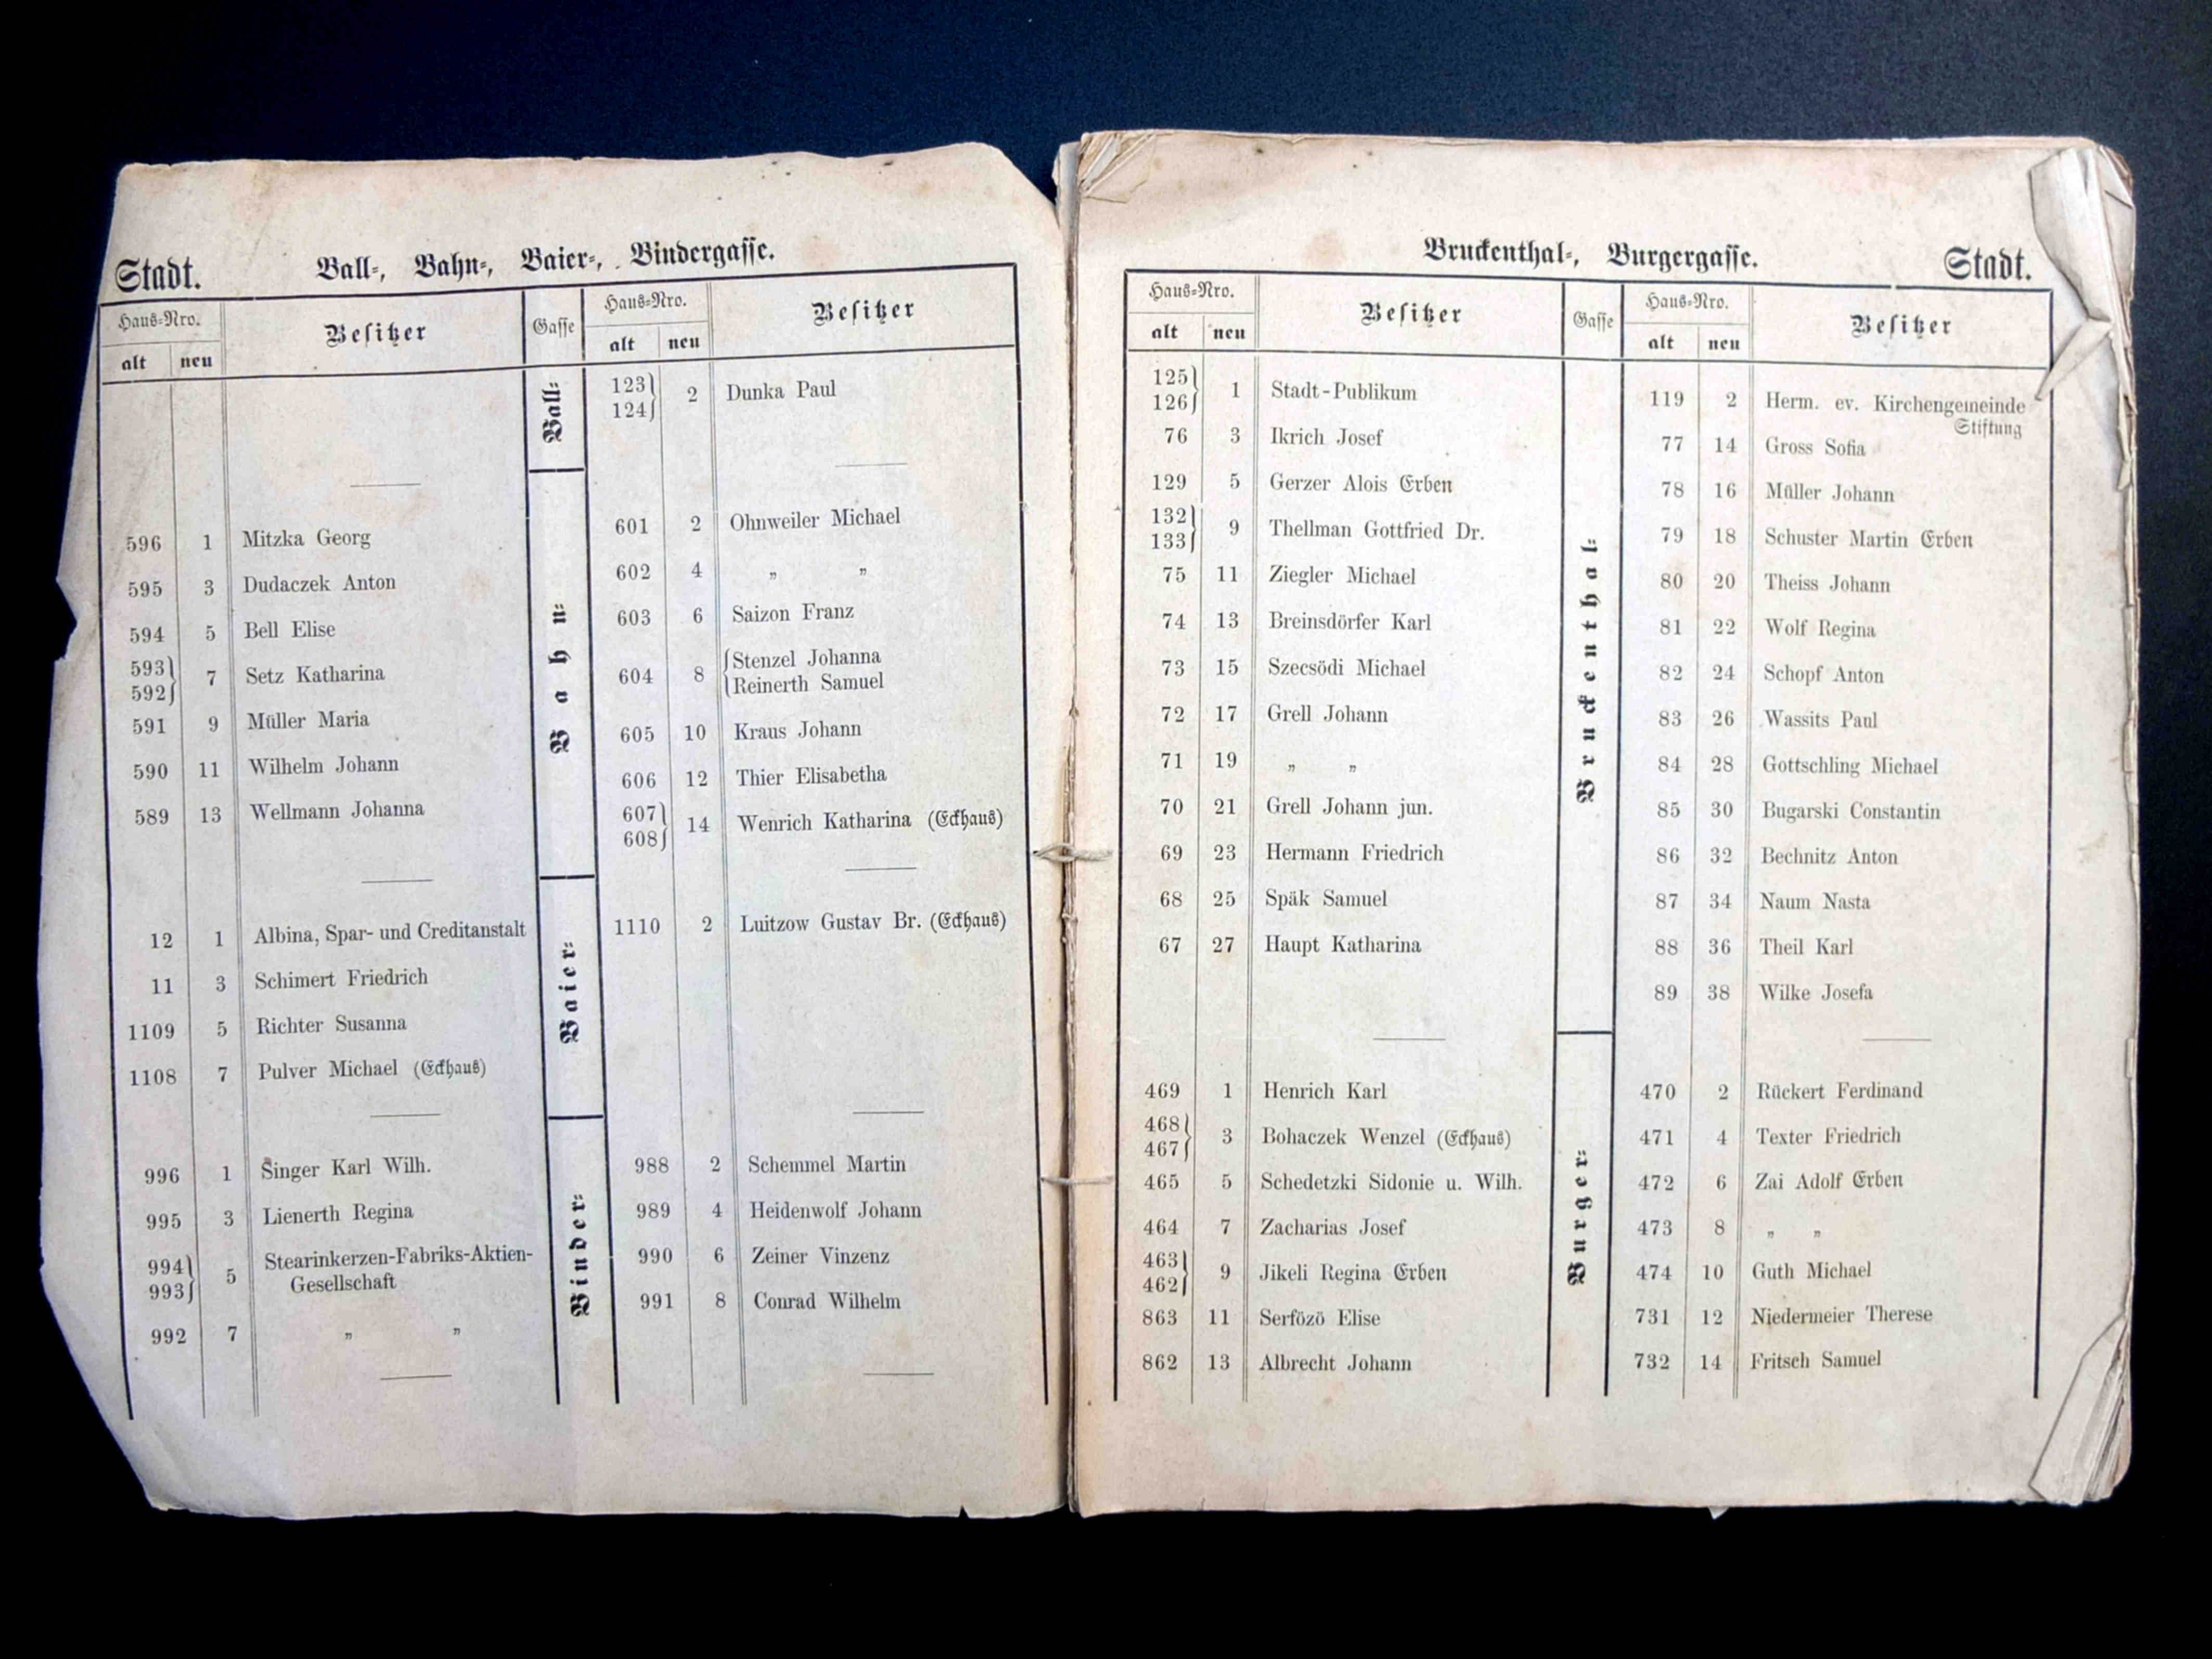 Stadt. Ball-, Bahn-, Baier-, Bindergasse.
Haus-Nro. Besitzer Gasse Haus-Nro. Besitzer
alt neu alt neu
Ball-
123 124 2 Dunka Paul
Bahn-
596 1 Mitzka Georg 601 2 Ohnweiler Michael
595 3 Dudaczek Anton 602 4 „ „
594 5 Bell Elise 603 6 Saizon Franz
593 592 7 Setz Katharina 604 8 Stenzel Johanna
Reinerth Samuel
591 9 Müller Maria 605 10 Kraus Johann
590 11 Wilhelm Johann 606 12 Thier Elisabetha
589 13 Wellmann Johanna 607 608 14 Wenrich Katharina (Eckhaus)
Baier-
12 1 Albina, Spar- und Creditanstalt 1110 2 Luitzow Gustav Br. (Eckhaus)
11 3 Schimert Friedrich
1109 5 Richter Susanna
1108 7 Pulver Michael (Eckhaus)
Binder-
996 1 Singer Karl Wilh. 988 2 Schemmel Martin
995 3 Lienerth Regina 989 4 Heidenwolf Johann
994 993 5 Stearinkerzen-Fabriks-Aktien- 990 6 Zeiner Vinzenz
Gesellschaft
991 8 Conrad Wilhelm
992 7 „ „
Bruckenthal-, Burgergasse. Stadt.
Haus-Nro. Besitzer Gasse Haus-Nro. Besitzer
alt neu alt neu
Bruckenthal-
125 126 1 Stadt-Publikum 119 2 Herm. ev. Kirchengemeinde
Stiftung
76 3 Ikrich Josef 77 14 Gross Sofia
129 5 Gerzer Alois Erben 78 16 Müller Johann
132 133 9 Thellman Gottfried Dr. 79 18 Schuster Martin Erben
75 11 Ziegler Michael 80 20 Theiss Johann
74 13 Breinsdörfer Karl 81 22 Wolf Regina
73 15 Szecsödi Michael 82 24 Schopf Anton
72 17 Grell Johann 83 26 Wassits Paul
71 19 „ „ 84 28 Gottschling Michael
70 21 Grell Johann jun. 85 30 Bugarski Constantin
69 23 Hermann Friedrich 86 32 Bechnitz Anton
68 25 Späk Samuel 87 34 Naum Nasta
67 27 Haupt Katharina 88 36 Theil Karl
89 38 Wilke Josefa
Burger-
469 1 Henrich Karl 470 2 Rückert Ferdinand
468 467 3 Bohaczek Wenzel (Eckhaus) 471 4 Texter Friedrich
465 5 Schedetzki Sidonie u. Wilh. 472 6 Zai Adolf Erben
464 7 Zacharias Josef 473 8 „ „
463 462 9 Jikeli Regina Erben 474 10 Guth Michael
863 11 Serfözö Elise 731 12 Niedermeier Therese
862 13 Albrecht Johann 732 14 Fritsch Samuel